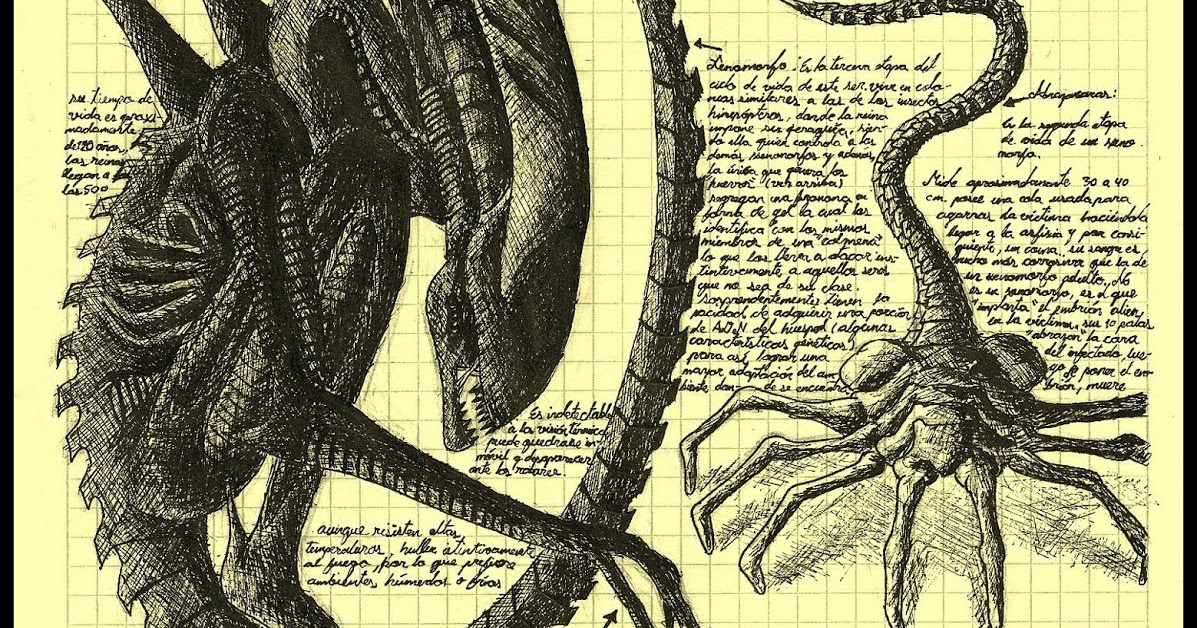 su tiempo de
vida es aproxi-
madamente
de 120 años,
las reinas
llegan a
los 500
Xenomorfo: Es la tercera etapa del
ciclo de vida de este ser, vive en colo-
nias similares a las de los insectos
himenópteros, donde la reina
impone su jerarquía, sien-
do ella quien controla a los
demás xenomorfos y además,
la única que genera los
huevos (ver arriba)
segregan una feromona en
forma de gel la cual los
identifica con los mismos
miembros de una "colmena"
lo que los lleva a atacar ins-
tintivamente a aquellos seres
que no sea de su clase.
Sorprendentemente tienen la
pacidad de adquirir una porción
de ADN del huesped (algunas
características genéticas)
para así lograr una
mayor adaptación del am-
biente don- de se encuentra
Abrazacaras:
Es la segunda etapa
de vida de un xeno-
morfo.
Mide aproximadamente 30 a 40
cm, posee una cola usada para
agarrar la víctima haciéndola
llegar a la asfixia y por consi-
guiente, un coma, su sangre es
mucho más corrosiva que la de
un xenomorfo adulto, No
es un xenomorfo, es el que
"implanta" el embrión alien
en la víctima, sus 10 patas
"abrazan" la cara
del infectado, lue-
go de poner el em-
brión, muere
Es indetectable
a la visión térmica
puede quedarse in-
móvil y desaparecer
ante los radares.
aunque resisten altas
temperaturas, huyen instintivamente
al fuego, por lo que prefiere
ambientes húmedos o fríos